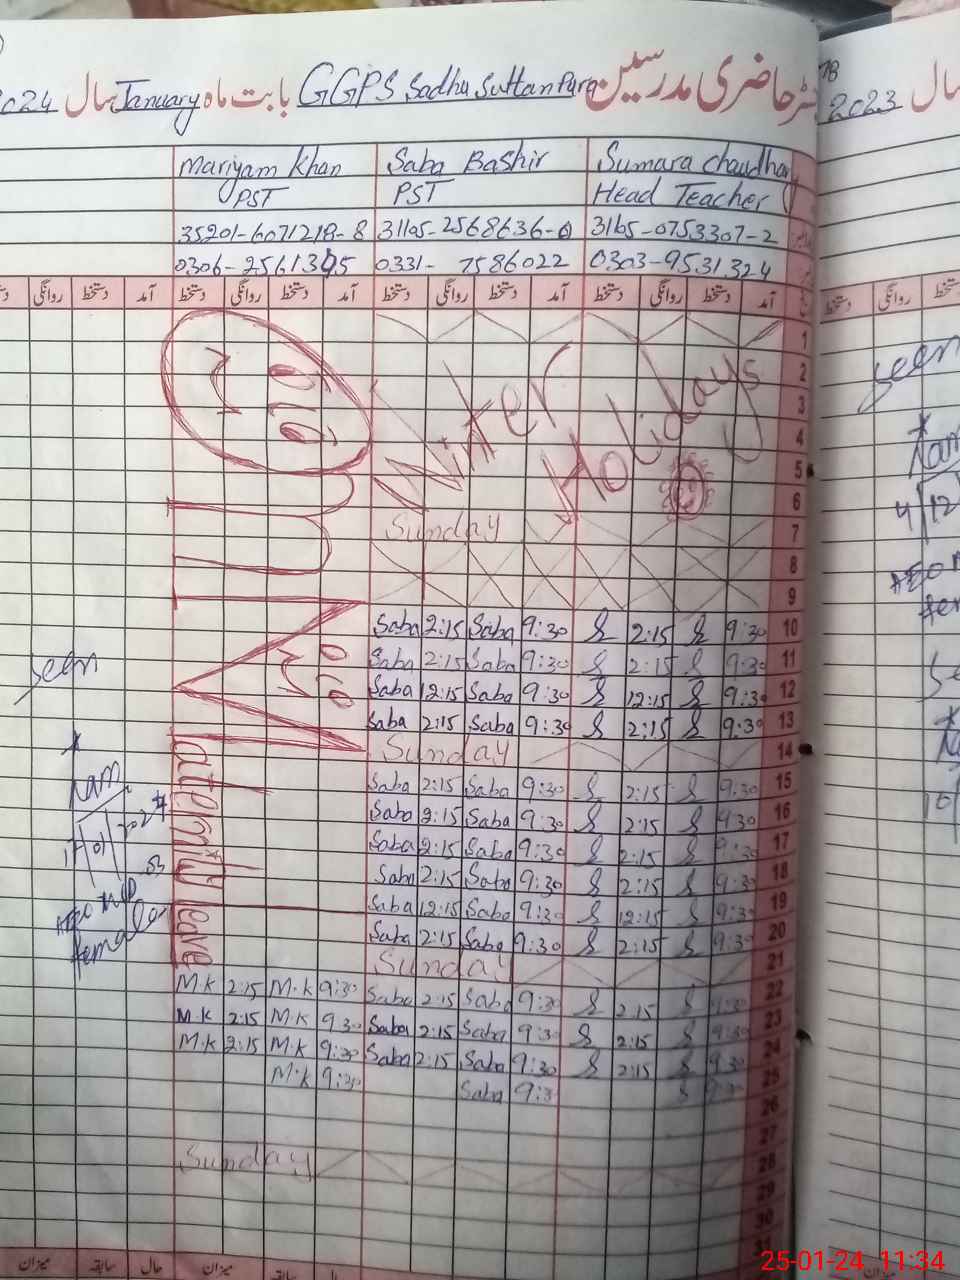 رجسٹر حاضری مدرسین GGPS Sadhu Suttan Pura بابت ماہ January سال 2024
Sumara Chaudhary Saba Bashir Mariyam Khan
Head Teacher PST PST
3165-0753307-2 31105-2568636-0 35201-6071218-8
0303-9531324 0331-7586022 0306-2561395
آمد دستخط روانگی دستخط آمد دستخط روانگی دستخط آمد دستخط روانگی دستخط
1
2
3
4
5
6
Winter Holidays
7 Sunday
8
9
Saba 2:15 Saba 9:30 S 2:15 S 9:30 10
Saba 2:15 Saba 9:30 S 2:15 S 9:30 11
Saba 12:15 Saba 9:30 S 12:15 S 9:30 12
Saba 2:15 Saba 9:30 S 2:15 S 9:30 13
Sunday 14
Saba 2:15 Saba 9:30 S 2:15 S 9:30 15
Saba 2:15 Saba 9:30 S 2:15 S 9:30 16
Saba 2:15 Saba 9:30 S 2:15 S 9:30 17
Saba 2:15 Saba 9:30 S 2:15 S 9:30 18
Saba 12:15 Saba 9:30 S 12:15 S 9:30 19
Saba 2:15 Saba 9:30 S 2:15 S 9:30 20
Sunday 21
M.K 2:15 M.K 9:30 Saba 2:15 Saba 9:30 S 2:15 S 9:30 22
M.K 2:15 M.K 9:30 Saba 2:15 Saba 9:30 S 2:15 S 9:30 23
M.K 2:15 M.K 9:30 Saba 2:15 Saba 9:30 S 2:15 S 9:30 24
M.K 9:30 Saba 9:3 S 9:30 25
26
27
Sunday 28
29
30
31
Maternity leave
seen
female
حال سابقہ میزان حال سابقہ میزان
سال 2023
دستخط روانگی دستخط
seen
4 12
25-01-24 11:34